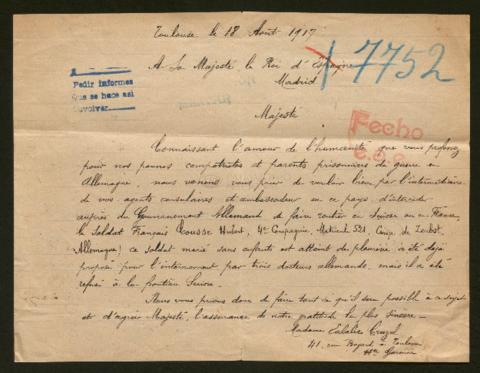 Toulouse le 18 Août 1917
A Sa Majesté le Roi d'Espagne
Madrid
7752
Pedir informes
que se hace asi
devolver
Majesté
Fecho
Connaissant l'amour de l'humanité que vous professez
pour nos pauvres compatriotes et parents prisonniers de guerre en
Allemagne, nous venons vous prier de vouloir bien par l'intermédiaire
de vos agents consulaires et ambassadeur en ce pays, d'intercéder
auprès du Gouvernement Allemand de faire rentrer en Suisse ou en France,
le soldat Français Cousse Hubert, 4e Compagnie, Matricule 521, Camp de Zerbst,
Allemagne; ce soldat marié sans enfants est atteint de pleurésie, a été déjà
proposé pour l'internement par trois docteurs allemands, mais il a été
refusé à la frontière Suisse.
Nous vous prions donc de faire tout ce qu'il sera possible à ce sujet
et d'agréer Majesté, l'assurance de notre gratitude la plus sincère
Madame Eulalie
41, rue Bayard à Toulouse
Hte Garonne